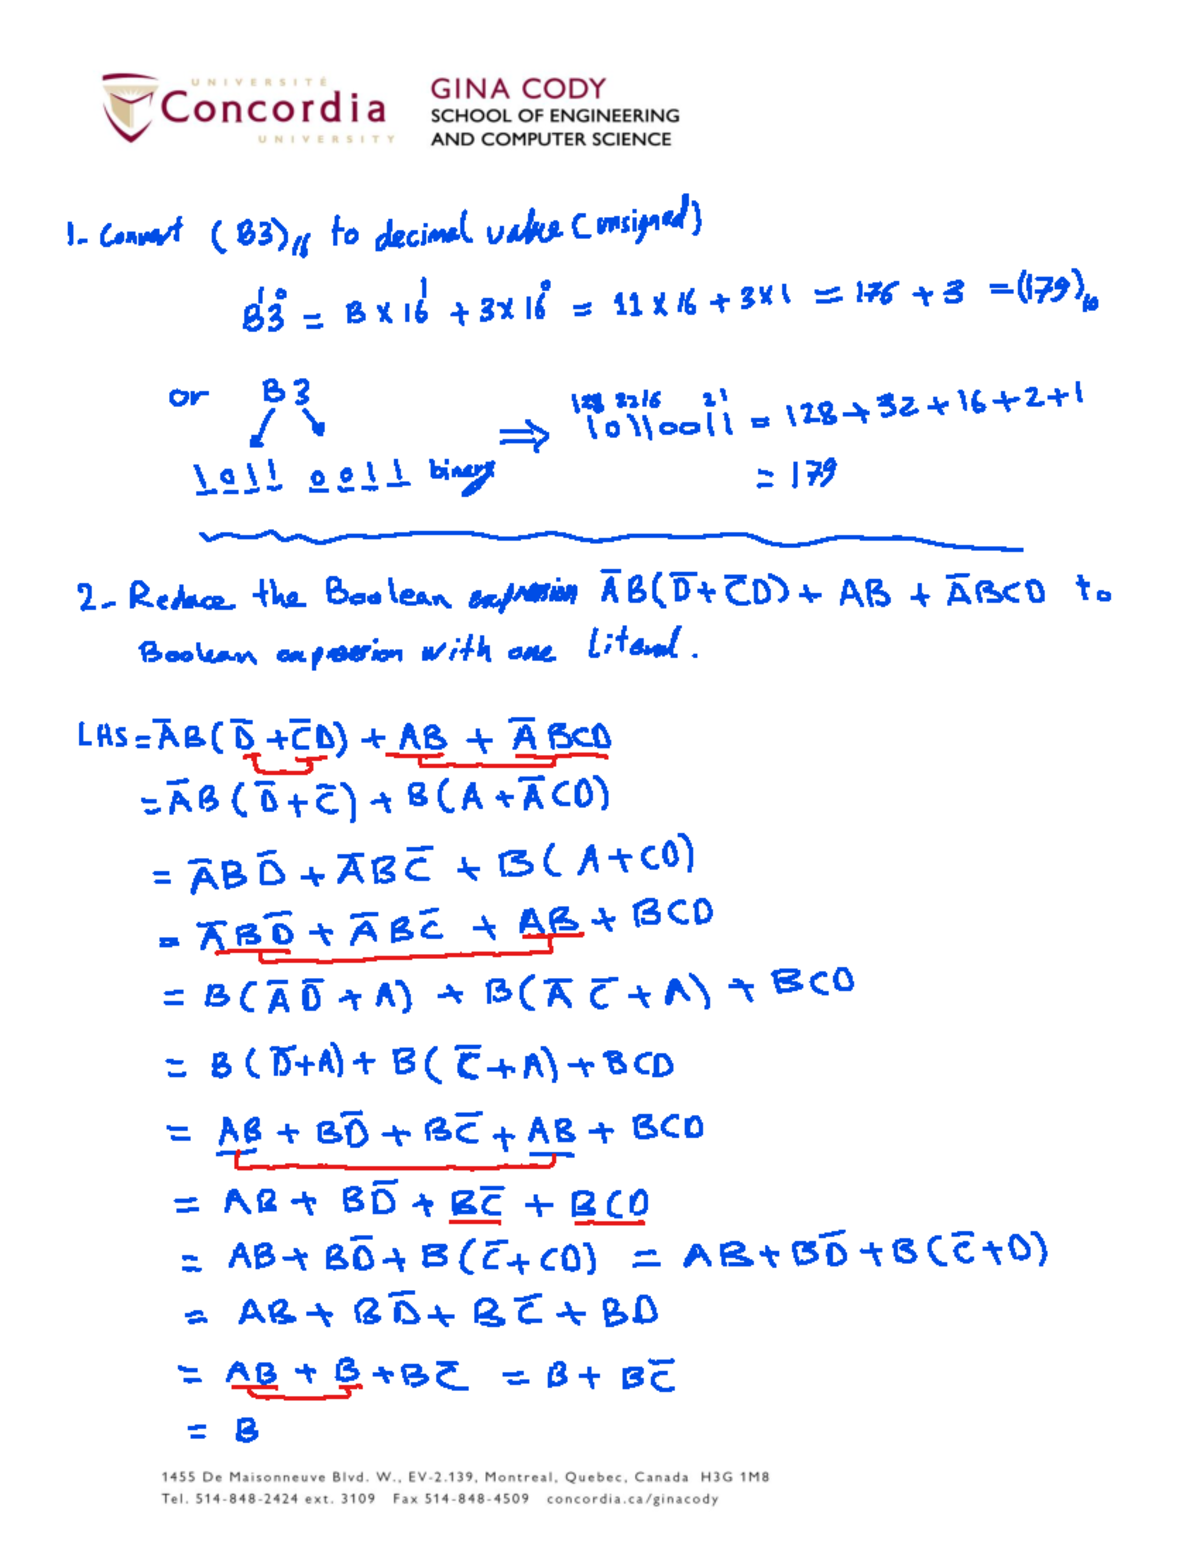 UNIVERSITÉ
Concordia
UNIVERSITY
GINA CODY
SCHOOL OF ENGINEERING
AND COMPUTER SCIENCE
1- Convert (B3)₁₆ to decimal value (unsigned)
1 0
B3 = B × 16¹ + 3 × 16⁰ = 11 × 16 + 3×1 = 176 + 3 = (179)₁₀
or B 3 ⇒ 128 32 16 2 1
10110011 = 128 + 32 + 16 + 2 + 1
1011 0011 binary = 179
2- Reduce the Boolean expression A̅B(D̅+C̅D) + AB + A̅BCD to
Boolean expression with one Literal.
LHS = A̅B(D̅+C̅D) + AB + A̅BCD
= A̅B(D̅+C̅) + B(A+A̅CD)
= A̅BD̅ + A̅BC̅ + B(A+CD)
= A̅BD̅ + A̅BC̅ + AB + BCD
= B(A̅D̅ + A) + B(A̅C̅ + A) + BCD
= B(D̅+A) + B(C̅+A) + BCD
= AB + BD̅ + BC̅ + AB + BCD
= AB + BD̅ + BC̅ + BCD
= AB + BD̅ + B(C̅+CD) = AB + BD̅ + B(C̅+D)
= AB + BD̅ + BC̅ + BD
= AB + B + BC̅ = B + BC̅
= B
1455 De Maisonneuve Blvd. W., EV-2.139, Montreal, Quebec, Canada H3G 1M8
Tel. 514-848-2424 ext. 3109 Fax 514-848-4509 concordia.ca/ginacody